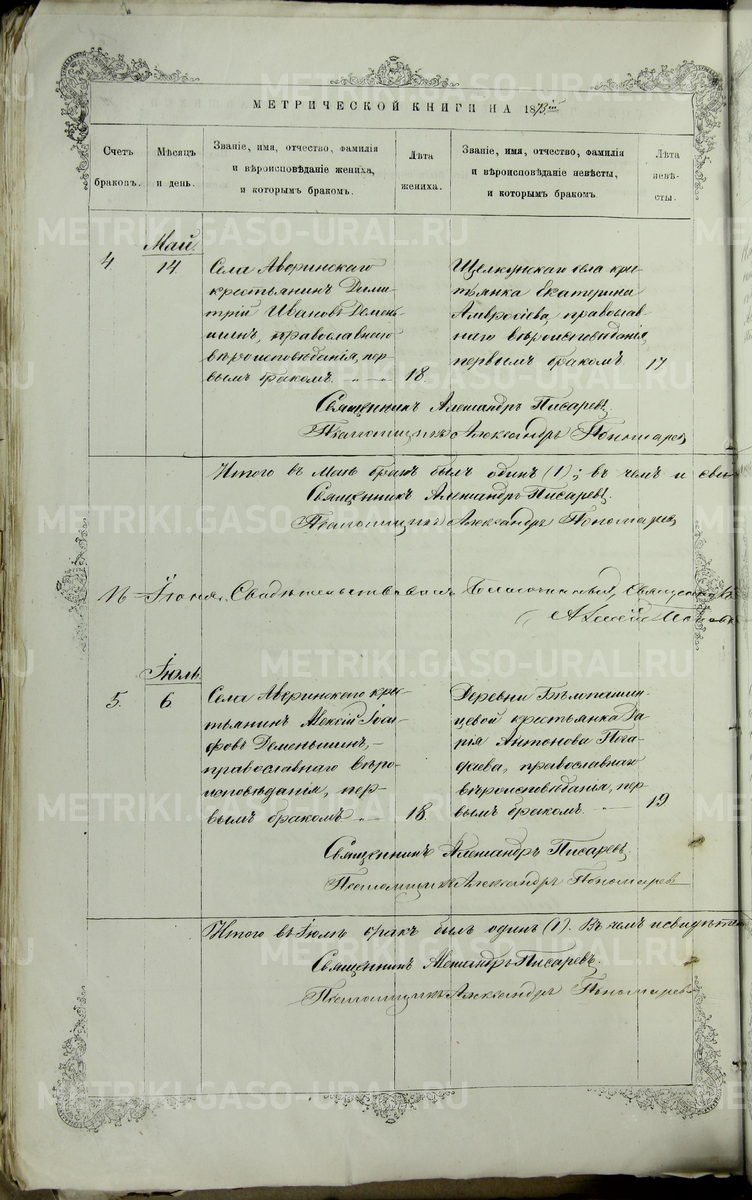 МЕТРИЧЕСКОЙ КНИГИ НА 1873й
Счетъ браковъ.
Мѣсяцъ и день.
Званіе, имя, отчество, фамилія
и вѣроисповѣданіе жениха,
и которымъ бракомъ.
Лѣта жениха.
Званіе, имя, отчество, фамилія
и вѣроисповѣданіе невѣсты,
и которымъ бракомъ.
Лѣта невѣсты.
Май.
4
14
Села Аверинскаго
крестьянинъ Дими-
трій Ивановъ Демень-
шинъ, православнаго
вѣроисповѣданія, пер-
вымъ бракомъ.
18.
Щелкунскаго села кре-
стьянка Екатерина
Амвросіева, православ-
наго вѣроисповѣданія,
первымъ бракомъ.
17
Священникъ Александръ Писаревъ.
Псаломщикъ Александръ Пономаревъ
Итого въ Маѣ бракъ былъ одинъ (1); въ чемъ и сви-
Священникъ Александръ Писаревъ.
Псаломщикъ Александръ Пономаревъ
Іюня. Свидѣтельствовалъ Священникъ
Іюль.
5.
6
Села Аверинскаго кре-
стьянинъ Алексій Іоси-
фовъ Деменьшинъ,
православнаго вѣро-
исповѣданія, пер-
вымъ бракомъ
18.
Деревни
крестьянка Да-
рья Антонова Пога-
даева, православнаго
вѣроисповѣданія, пер-
вымъ бракомъ.
19
Священникъ Александръ Писаревъ.
Псаломщикъ Александръ Пономаревъ
Итого въ Іюлѣ бракъ былъ одинъ (1). Въ чемъ и свидѣтель
Священникъ Александръ Писаревъ.
Псаломщикъ Александръ Пономаревъ
METRIKI.GASO-URAL.RU